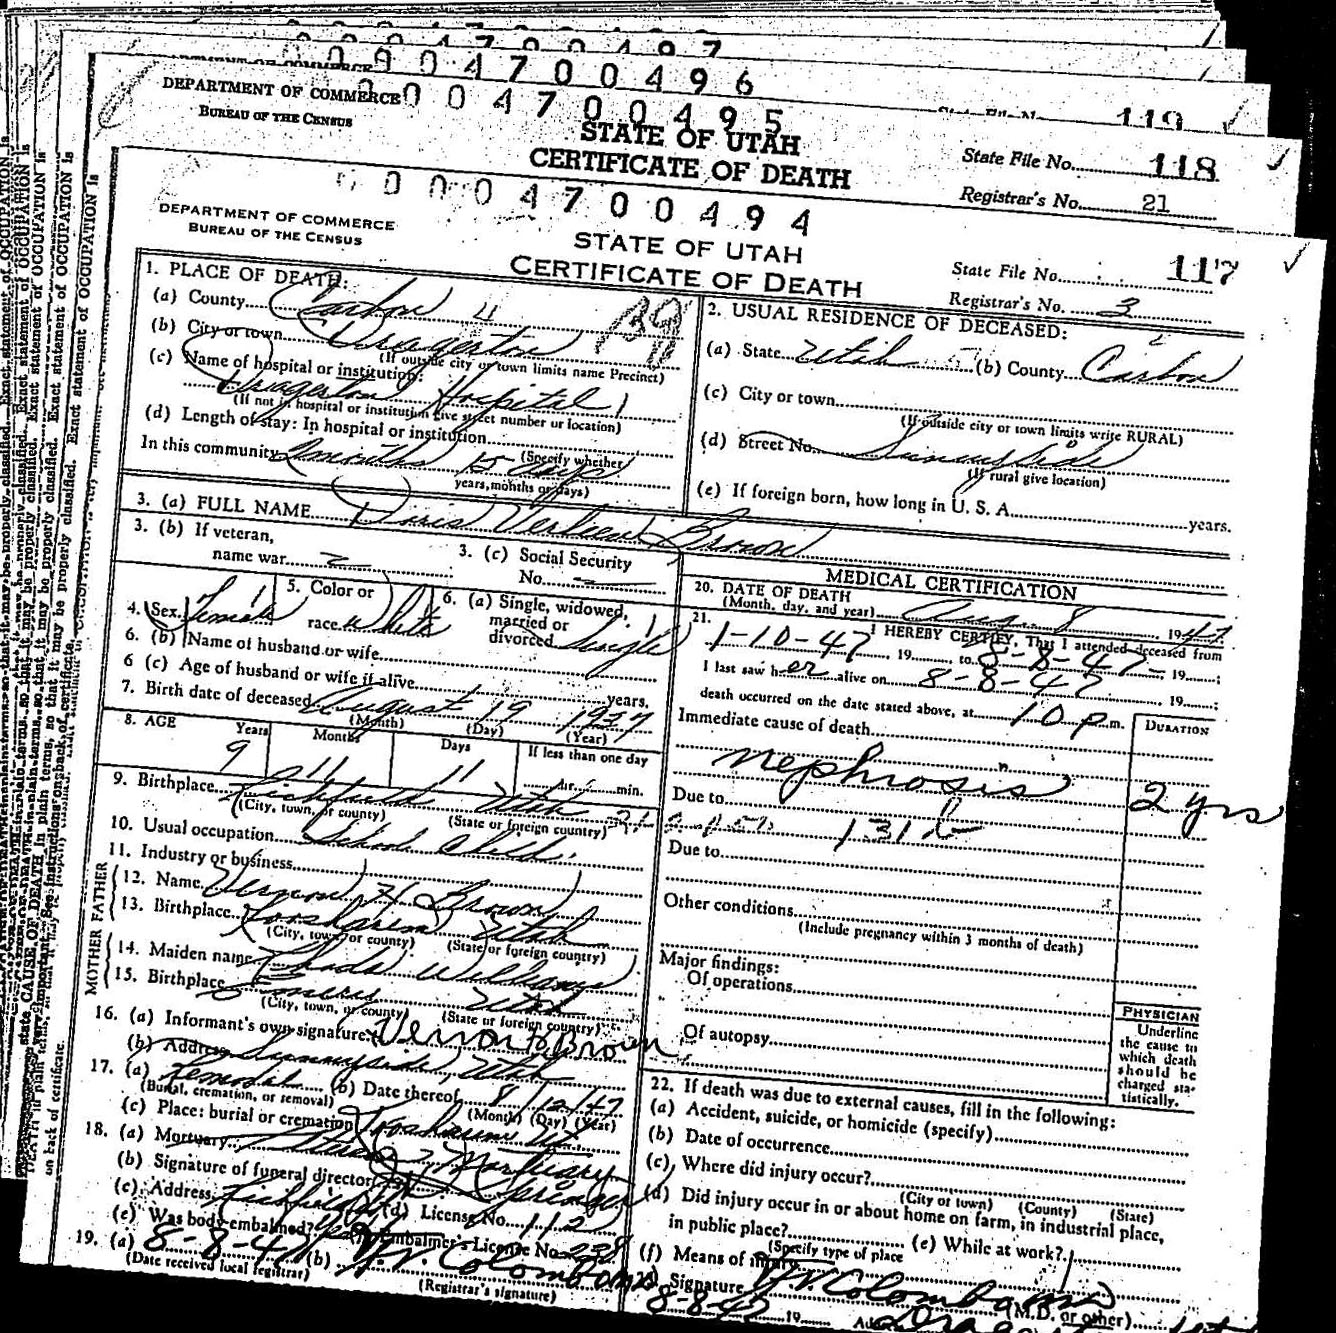 0 0 0 4 7 0 0 4 9 7
0 0 0 4 7 0 0 4 9 6
119
DEPARTMENT OF COMMERCE
BUREAU OF THE CENSUS
0 0 0 4 7 0 0 4 9 5
STATE OF UTAH
CERTIFICATE OF DEATH
State File No. 118
Registrar's No. 21
0 0 0 4 7 0 0 4 9 4
DEPARTMENT OF COMMERCE
BUREAU OF THE CENSUS
STATE OF UTAH
CERTIFICATE OF DEATH
State File No. 117
Registrar's No. 3
1. PLACE OF DEATH:
(a) County Carbon 4
(b) City or town Dragerton
(If outside city or town limits name Precinct)
(c) Name of hospital or institution:
Dragerton Hospital
(If not in hospital or institution give street number or location)
(d) Length of stay: In hospital or institution
(Specify whether
In this community 2 months 15 days
years, months or days)
2. USUAL RESIDENCE OF DECEASED:
(a) State Utah (b) County Carbon
(c) City or town
(If outside city or town limits write RURAL)
(d) Street No. Sunnyside
(If rural give location)
(e) If foreign born, how long in U. S. A. years.
3. (a) FULL NAME Doris Verleen Brown
3. (b) If veteran,
name war
3. (c) Social Security
No.
4. Sex Female
5. Color or
race White
6. (a) Single, widowed,
married or
divorced Single
6. (b) Name of husband or wife
6 (c) Age of husband or wife if alive years.
7. Birth date of deceased August 19 1937
(Month) (Day) (Year)
8. AGE Years Months Days If less than one day
9 11 11 hr. min.
9. Birthplace Richfield Utah
(City, town, or county) (State or foreign country)
10. Usual occupation School Child
11. Industry or business
FATHER
12. Name Vernon H Brown
13. Birthplace Koosharem Utah
(City, town, or county) (State or foreign country)
MOTHER
14. Maiden name Rhoda Williams
15. Birthplace Emery Utah
(City, town, or county) (State or foreign country)
16. (a) Informant's own signature Vernon H Brown
(b) Address Sunnyside, Utah
17. (a) Removal (b) Date thereof 8/12/47
(Burial, cremation, or removal) (Month) (Day) (Year)
(c) Place: burial or cremation Koosharem Ut.
18. (a) Mortuary Mortuary
(b) Signature of funeral director Springer
(c) Address Richfield (d) License No. 112
(e) Was body embalmed? (f) Embalmer's License No. 238
19. (a) 8-8-47 (b) Colombo
(Date received local registrar) (Registrar's signature)
MEDICAL CERTIFICATION
20. DATE OF DEATH
(Month, day, and year) Aug. 8 1947
21. I HEREBY CERTIFY, That I attended deceased from
1-10-47, 19 to 8-8-47
I last saw her alive on 8-8-47 19 ;
death occurred on the date stated above, at 10 p m.
Immediate cause of death
DURATION
nephrosis
2 yrs
Due to
131 b
Due to
Other conditions
(Include pregnancy within 3 months of death)
Major findings:
Of operations
Of autopsy
PHYSICIAN
Underline
the cause to
which death
should be
charged sta-
tistically.
22. If death was due to external causes, fill in the following:
(a) Accident, suicide, or homicide (specify)
(b) Date of occurrence
(c) Where did injury occur?
(City or town) (County) (State)
(d) Did injury occur in or about home on farm, in industrial place,
in public place?
(Specify type of place
(e) While at work?
(f) Means of injury
Signature Colombo
(M.D. or other)
8-8-47 19